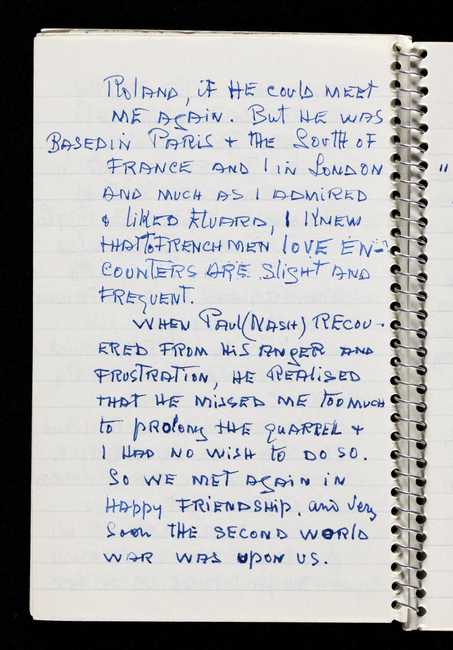 Roland, if HE could MEET
ME again. But HE was
BASED in Paris + the South of
FRANCE and I in London
and much as I admired
& liked Eluard, I knew
that to FRENCHMEN love EN-
COUNTERS ARE slight and
FREQUENT.
WHEN Paul (Nash) RECOV-
ERED FROM his anger and
frustration, he REALISED
that he missed me too much
to prolong the quarrel +
I had no wish to do so.
So we met again in
Happy FRIENDSHIP. and very
soon the second world
war was upon us.
"